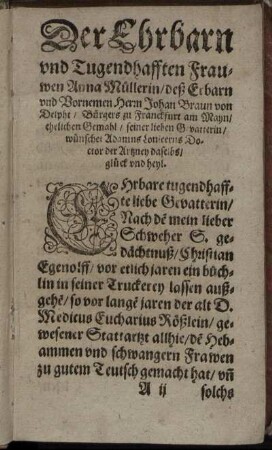 Der Ehrbarn
vnd Tugendhafften Frau-
wen Anna Müllerin/ deß Erbarn
vnd Vornemen Hern Johan Braun von
Delpht/ Bürgers zu Franckfurt am Mayn/
ehelichen Gemahl/ seiner lieben Gevatterin/
wünschet Adamus Lonicerus Do-
ctor der Artzney daselbs/
glück vnd heyl.
EHrbare tugendhaff-
te liebe Gevatterin/
Nach dē mein lieber
Schweher S. ge-
dächtnuß/ Christian
Egenolff/ vor etlich jaren ein büch-
lin in seiner Truckerey lassen auß-
gehē/ so vor langē jaren der alt D.
Medicus Eucharius Rößlein/ ge-
wesener Stattartzt allhie/ dē Heb-
ammen vnd schwangern Frawen
zu gutem Teutsch gemacht hat/ vn̄
A ij solchs